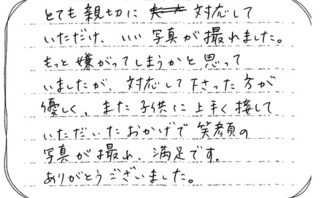 とても親切に対応して
いただけ、いい写真が撮れました。
もっと嫌がってしまうかと思って
いましたが、対応して下さった方が
優しく、また子供に上手く接して
いただいたおかげで笑顔の
写真が撮れ、満足です。
ありがとうございました。